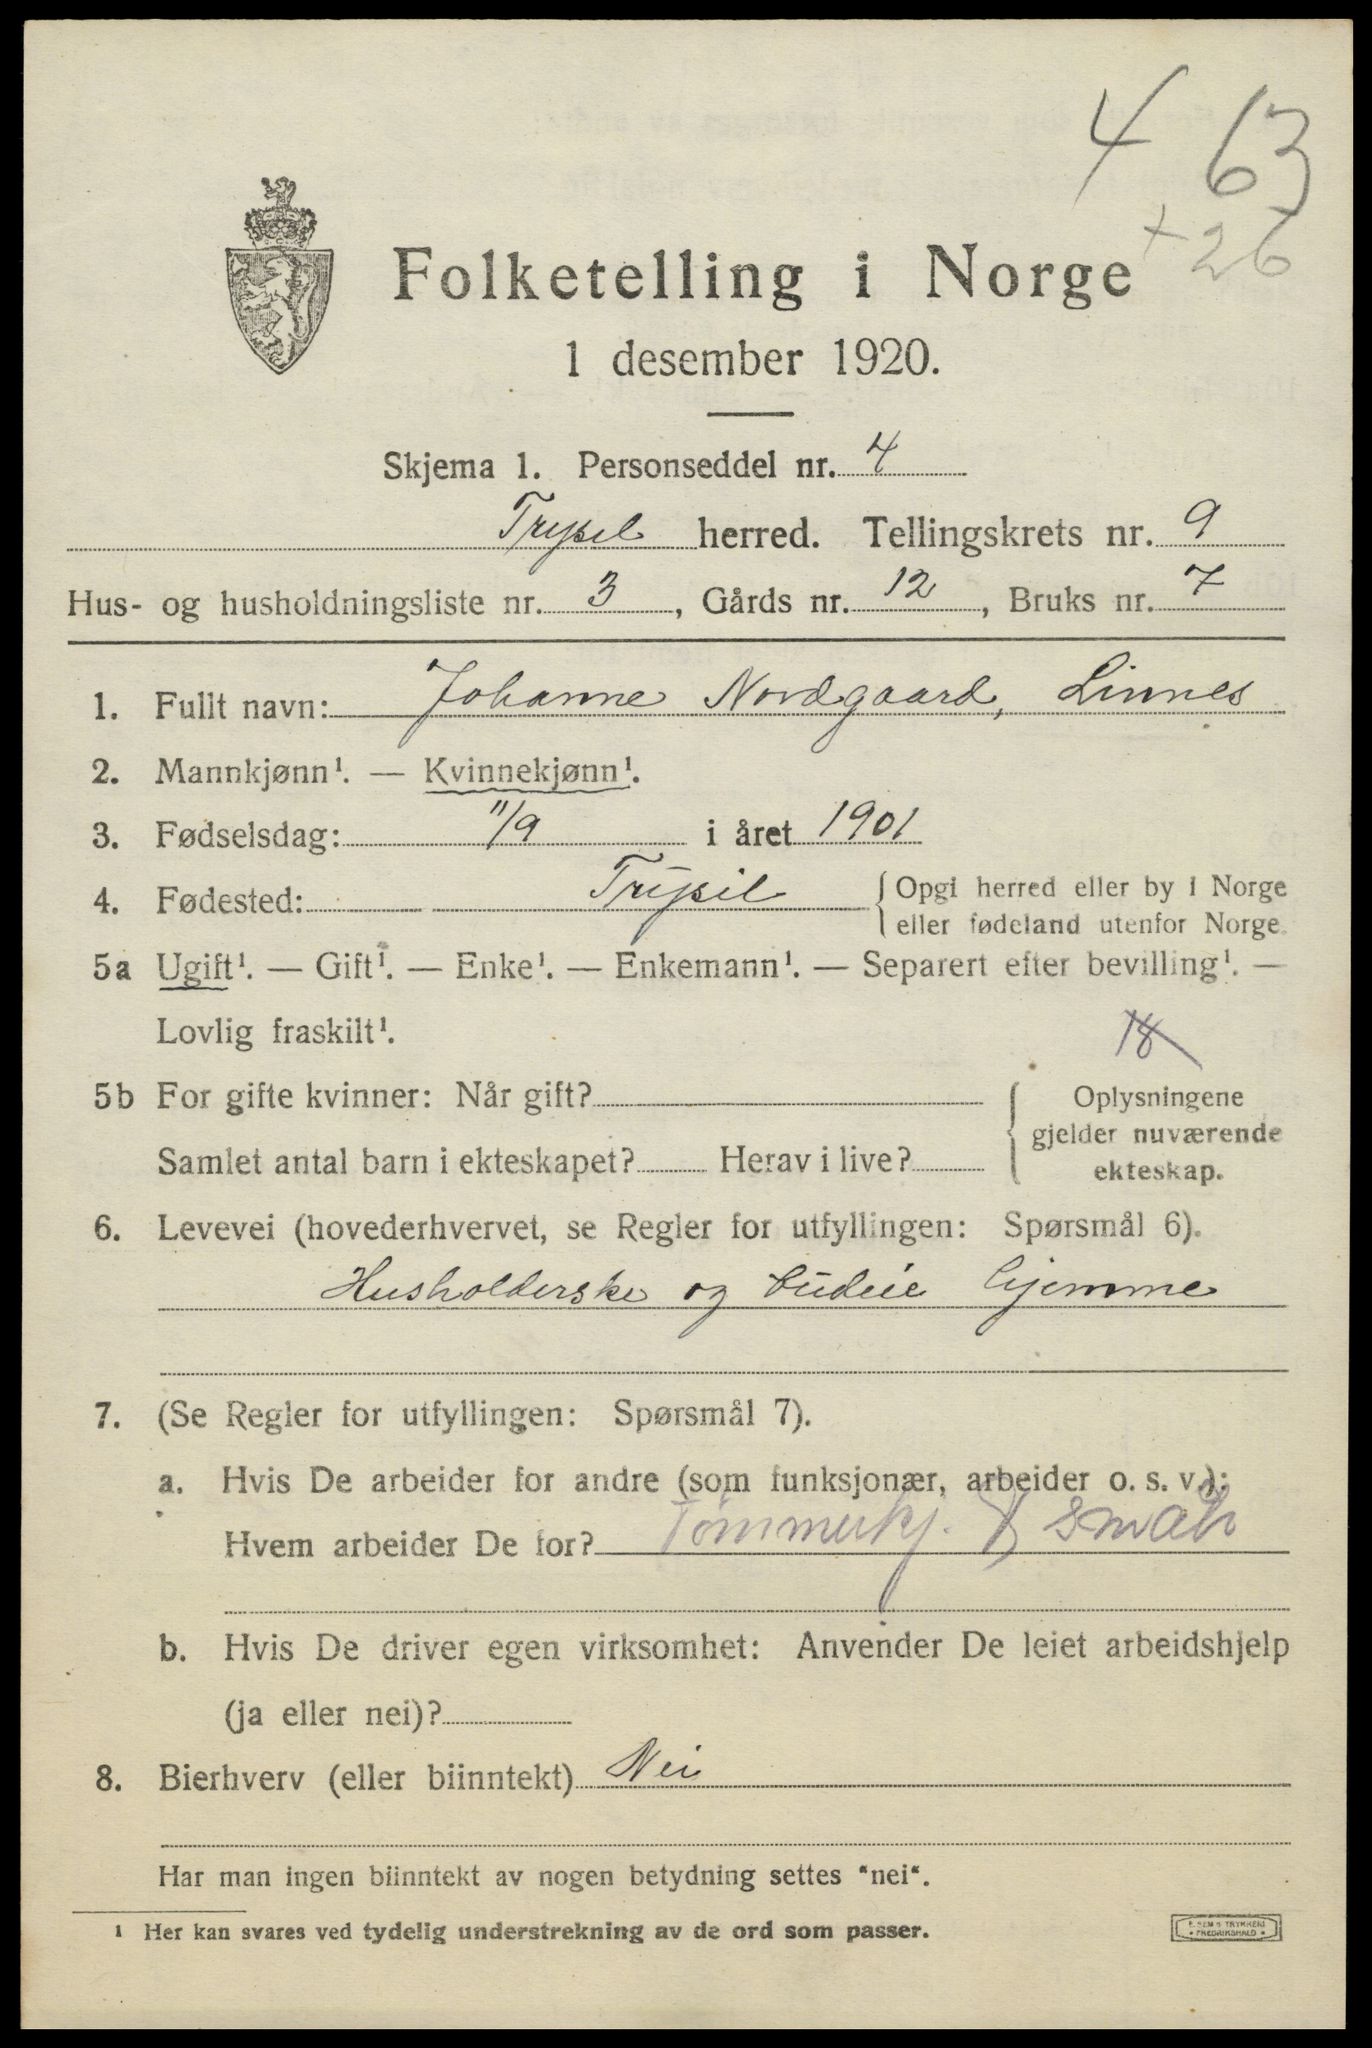 4 63
+26
Folketelling i Norge
1 desember 1920.
Skjema 1. Personseddel nr. 4
Trysil herred. Tellingskrets nr. 9
Hus- og husholdningsliste nr. 3, Gårds nr. 12, Bruks nr. 7
1. Fullt navn: Johanne Nordgaard, Linnes
2. Mannkjønn¹. — Kvinnekjønn¹.
3. Fødselsdag: 11/9 i året 1901
4. Fødested: Trysil {Opgi herred eller by i Norge
eller fødeland utenfor Norge.
5a Ugift¹. — Gift¹. — Enke¹. — Enkemann¹. — Separert efter bevilling¹. —
Lovlig fraskilt¹.
18
5b For gifte kvinner: Når gift? Oplysningene
gjelder nuværende
Samlet antal barn i ekteskapet? Herav i live?
ekteskap.
6. Levevei (hovederhvervet, se Regler for utfyllingen: Spørsmål 6).
Husholderske og budeie hjemme
7. (Se Regler for utfyllingen: Spørsmål 7).
a. Hvis De arbeider for andre (som funksjonær, arbeider o. s. v.):
Hvem arbeider De for? Tømmerkj.
b. Hvis De driver egen virksomhet: Anvender De leiet arbeidshjelp
(ja eller nei)?
8. Bierhverv (eller biinntekt) Nei
Har man ingen biinntekt av nogen betydning settes "nei".
¹ Her kan svares ved tydelig understrekning av de ord som passer.
E. SEM'S TRYKKERI
• FREDRIKSHALD •